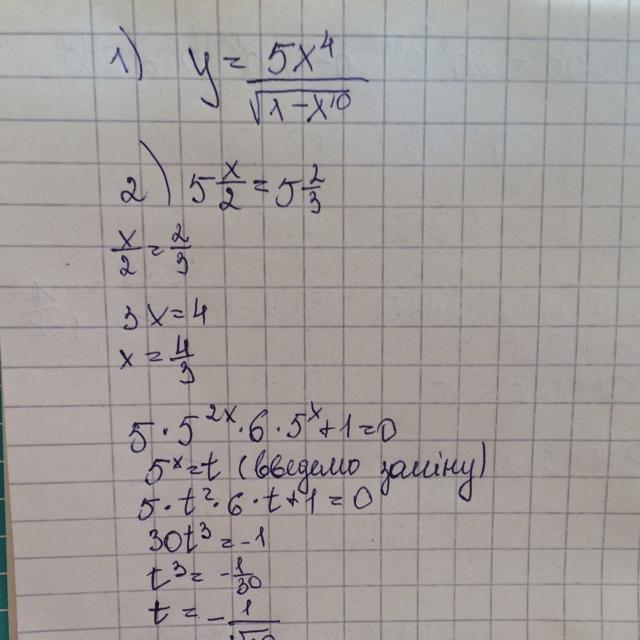 1) y = 5x⁴ / √(1-x¹⁰)
2) 5 x/2 = 5 2/3
x/2 = 2/3
3x = 4
x = 4/3
5 · 5²ˣ · 6 · 5ˣ + 1 = 0
5ˣ = t (введемо заміну)
5 · t² · 6 · t + 1 = 0
30t³ = -1
t³ = - 1/30
t = - 1